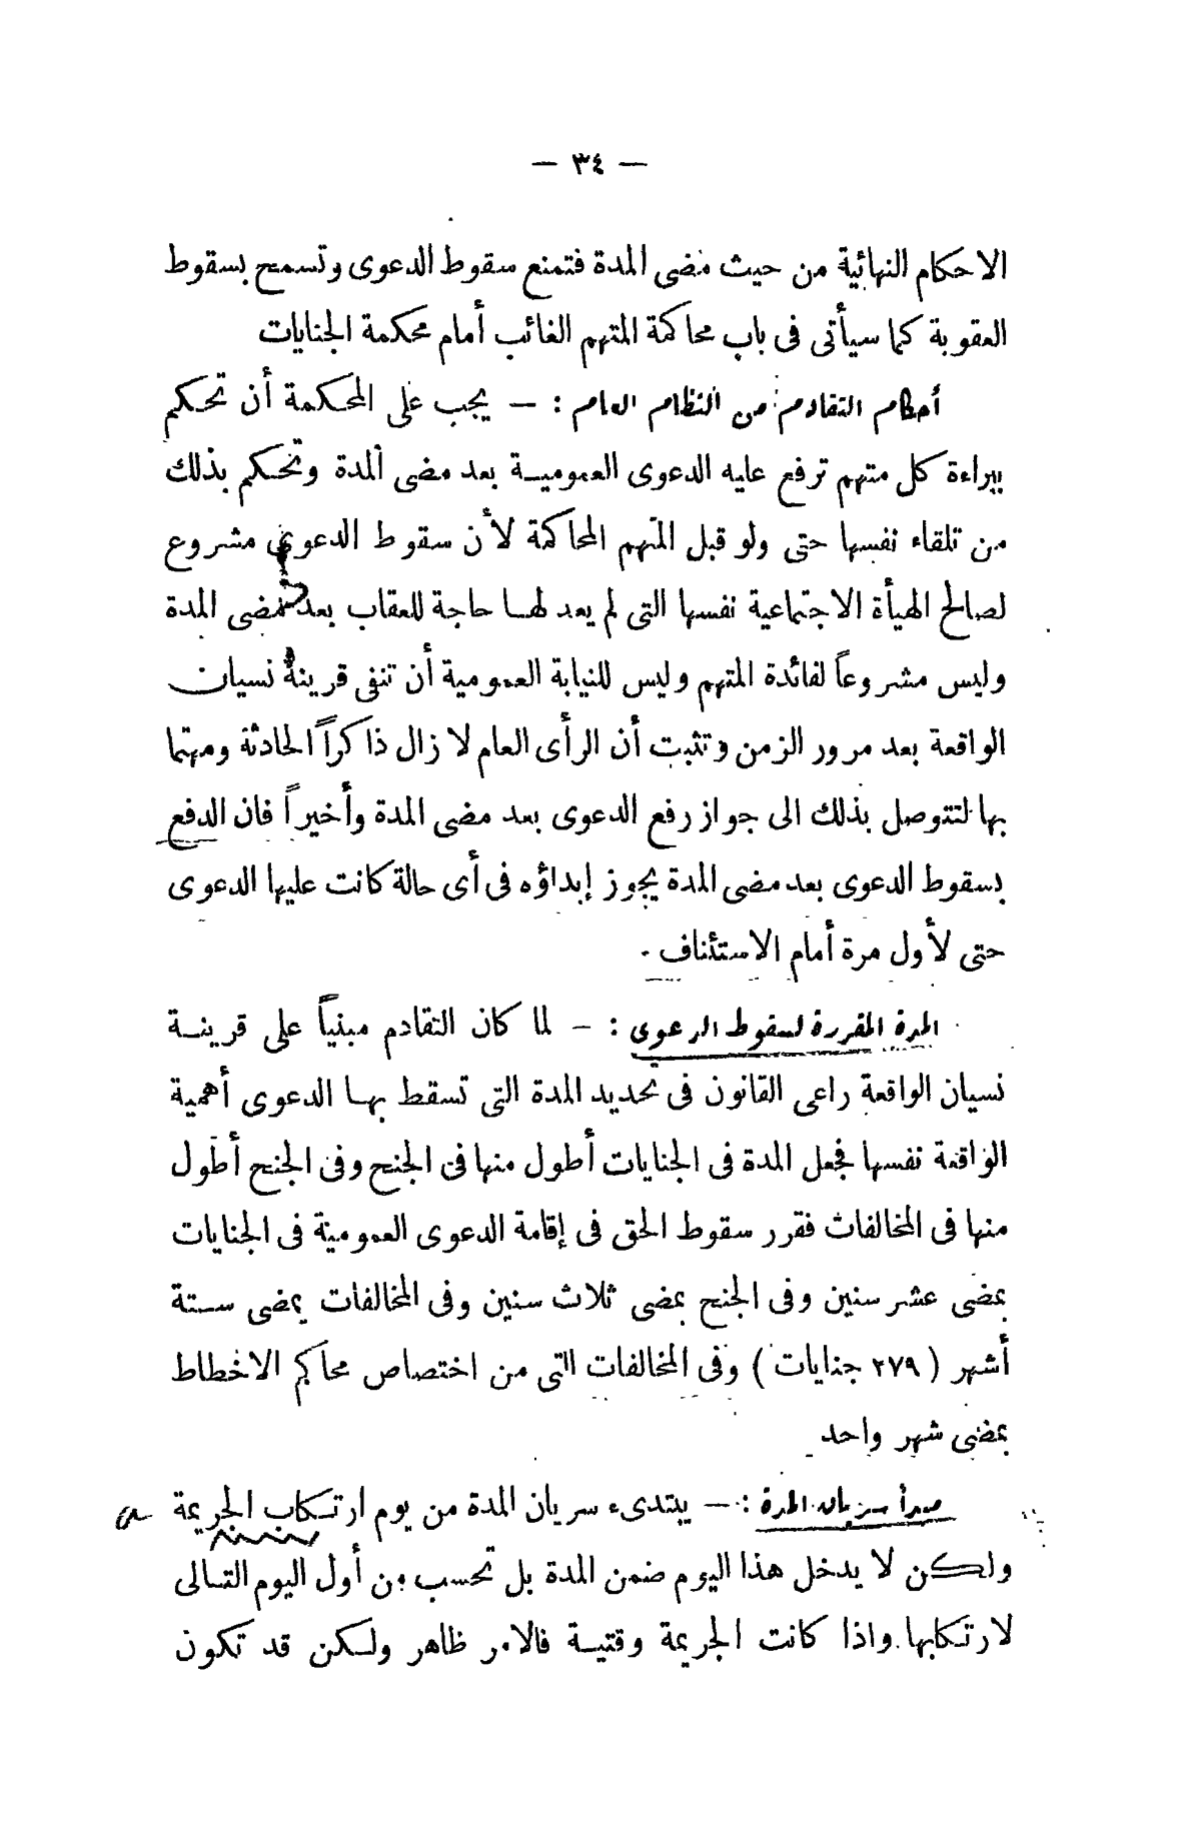 — ٣٤ —
الاحكام النهائية من حيث مضى المدة فتمنع سقوط الدعوى وتسمح بسقوط
العقوبة كما سيأتى فى باب محاكمة المتهم الغائب أمام محكمة الجنايات
أحكام التقادم من النظام العام : — يجب على المحكمة أن تحكم
ببراءة كل متهم ترفع عليه الدعوى العموميـة بعد مضى المدة وتحكم بذلك
من تلقاء نفسها حتى ولو قبل المتهم المحاكمة لأن سقوط الدعوى مشروع
لصالح الهيأة الاجتماعية نفسها التى لم يعد لهـا حاجة للعقاب بعد مضى المدة
وليس مشروعاً لفائدة المتهم وليس للنيابة العمومية أن تنفى قرينة نسيان
الواقعة بعد مرور الزمن وتثبت أن الرأى العام لا زال ذاكراً الحادثة ومهتما
بها لتتوصل بذلك الى جواز رفع الدعوى بعد مضى المدة وأخيراً فان الدفع
بسقوط الدعوى بعد مضى المدة يجوز إبداؤه فى أى حالة كانت عليها الدعوى
حتى لأول مرة أمام الاستئناف .
المدة المقررة لسقوط الدعوى : — لما كان التقادم مبنياً على قرينـة
نسيان الواقعة راعى القانون فى تحديد المدة التى تسقط بهـا الدعوى أهمية
الواقعة نفسها فجعل المدة فى الجنايات أطول منها فى الجنح وفى الجنح أطول
منها فى المخالفات فقرر سقوط الحق فى إقامة الدعوى العمومية فى الجنايات
بمضى عشر سنين وفى الجنح بمضى ثلاث سنين وفى المخالفات بمضى سـتة
أشهر ( ٢٧٩ جنايات ) وفى المخالفات التى من اختصاص محاكم الاخطاط
بمضى شهر واحد
مبدأ سريان المدة : — يبتدىء سريان المدة من يوم ارتـكاب الجريمة
ولـكن لا يدخل هذا اليوم ضمن المدة بل تحسب من أول اليوم التـالى
لارتـكابها واذا كانت الجريمة وقتيـة فالامر ظاهر ولـكن قد تكون